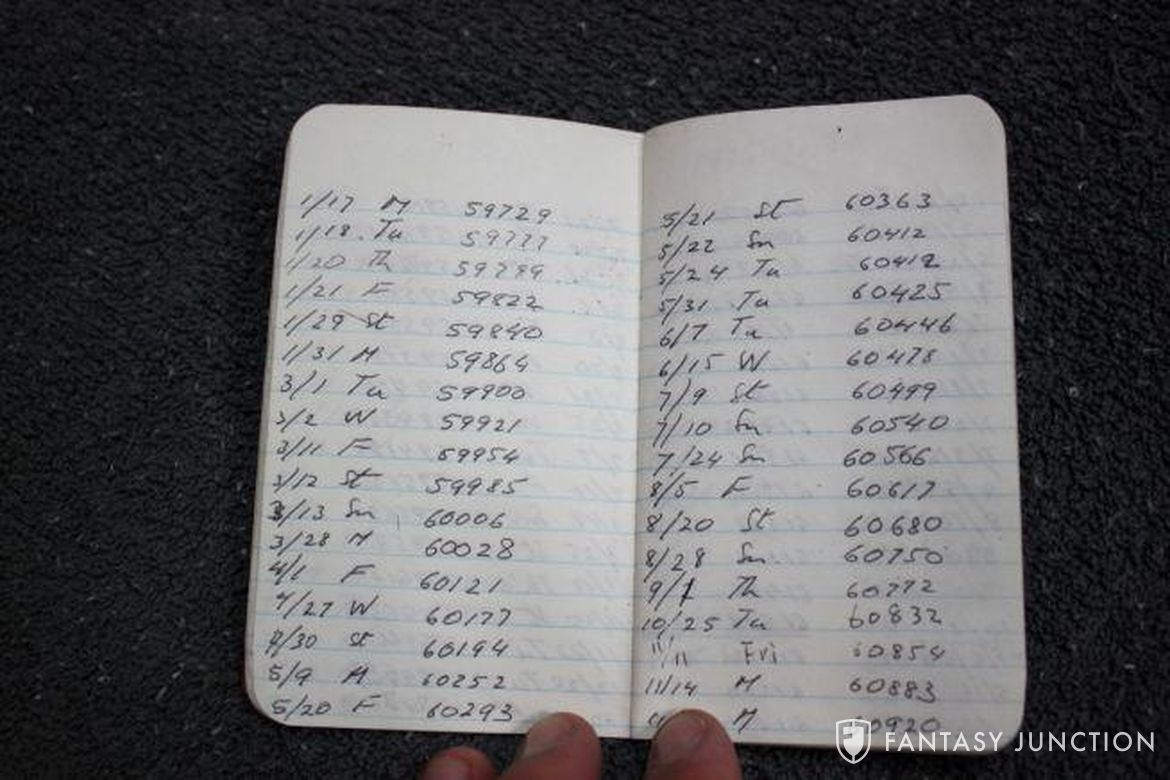 1/17 M 59729
1/18 Tu 59777
1/20 Th 59799
1/21 F 59822
1/29 St 59840
1/31 M 59864
3/1 Tu 59900
3/2 W 59921
3/11 F 59954
3/12 St 59985
3/13 Sn 60006
3/28 M 60028
4/1 F 60121
4/27 W 60177
4/30 St 60194
5/9 M 60252
5/20 F 60293
5/21 St 60363
5/22 Sn 60412
5/24 Tu 60412
5/31 Tu 60425
6/7 Tu 60446
6/15 W 60478
7/9 St 60499
7/10 Sn 60540
7/24 Sn 60566
8/5 F 60617
8/20 St 60680
8/28 Sn 60750
9/1 Th 60772
10/25 Tu 60832
11/11 Fri 60854
11/14 M 60883
M 60920
FANTASY JUNCTION